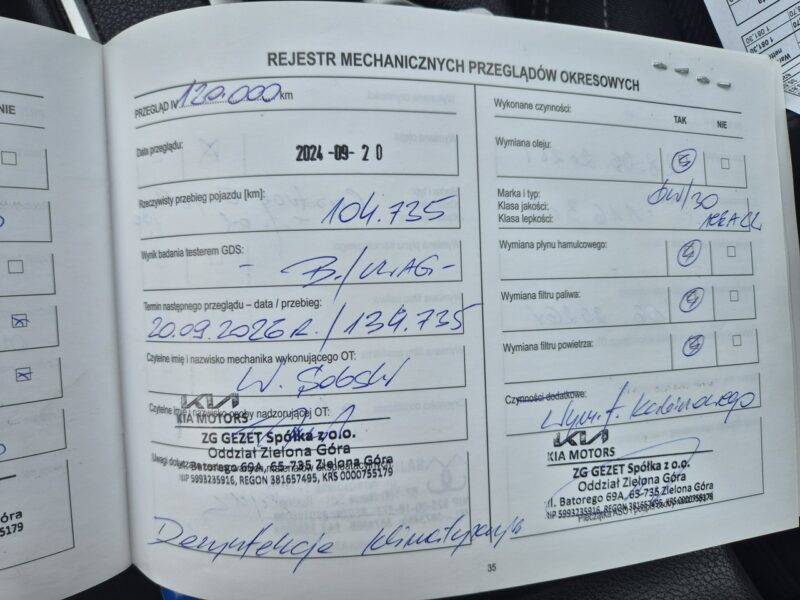 REJESTR MECHANICZNYCH PRZEGLĄDÓW OKRESOWYCH
PRZEGLĄD IV 120.000 km
Data przeglądu:
2024-09-20
Rzeczywisty przebieg pojazdu [km]:
104.735
Wynik badania testerem GDS:
- B./UWAG -
Termin następnego przeglądu – data / przebieg:
20.09.2026 R. / 134.735
Czytelne imię i nazwisko mechanika wykonującego OT:
W. Sobski
Czytelne imię i nazwisko osoby nadzorującej OT:
KIA
KIA MOTORS
ZG GEZET Spółka z o.o.
Oddział Zielona Góra
Batorego 69A, 65-735 Zielona Góra
NIP 5993235916, REGON 381657495, KRS 0000755179
Dezynfekcja klimatyzacji
Wykonane czynności:
TAK NIE
Wymiana oleju:
Marka i typ:
Klasa jakości:
Klasa lepkości:
0W/30
Wymiana płynu hamulcowego:
Wymiana filtru paliwa:
Wymiana filtru powietrza:
Czynności dodatkowe:
Wym. f. Kabinowego
KIA
KIA MOTORS
ZG GEZET Spółka z o.o.
Oddział Zielona Góra
ul. Batorego 69A, 65-735 Zielona Góra
NIP 5993235916, REGON 381657495, KRS 0000755179
35
NIE
Góra
755179
1 081,30
1 081,30